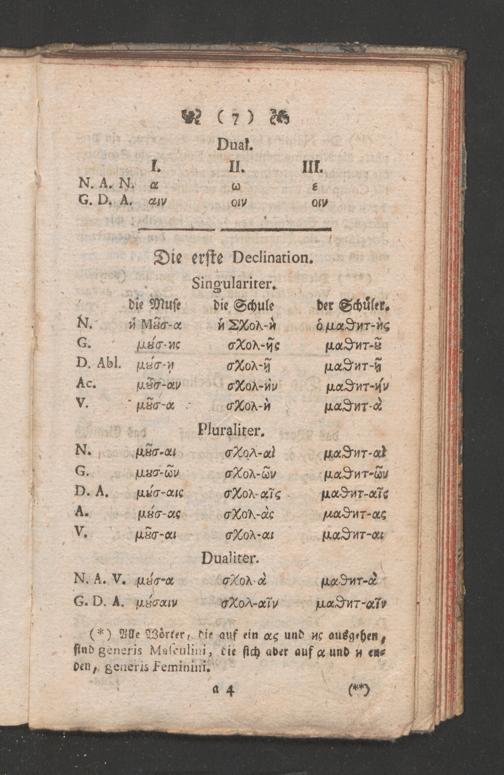 ( 7 )
Dual.
I. II. III.
N. A. N. α ω ε
G. D. A. αιν οιν οιν
Die erste Declination.
Singulariter.
die Muse die Schule der Schüler.
N. ἡ Μȣ̃σ-α ἡ Σχολ-ὴ ὁ μαθητ-ὴς
G. μȣ́σ-ης σχολ-ῆς μαθητ-ȣ̃
D. Abl. μȣ́σ-ῃ σχολ-ῇ μαθητ-ῇ
Ac. μȣ̃σ-αν σχολ-ήν μαθητ-ήν
V. μȣ̃σ-α σχολ-ὴ μαθητ-ὰ
Pluraliter.
N. μȣ̃σ-αι σχολ-αὶ μαθητ-αὶ
G. μȣσ-ῶν σχολ-ῶν μαθητ-ῶν
D. A. μȣ́σ-αις σχολ-αῖς μαθητ-αῖς
A. μȣ́σ-ας σχολ-ὰς μαθητ-ας
V. μȣ̃σ-αι σχολ-αι μαθητ-αι
Dualiter.
N. A. V. μȣ́σ-α σχολ-ὰ μαθητ-ὰ
G. D. A. μȣ́σαιν σχολ-αῖν μαθητ-αῖν
(*) Alle Wörter, die auf ein ας und ης ausgehen,
sind generis Masculini, die sich aber auf α und η en-
den, generis Feminini.
a 4 (**)